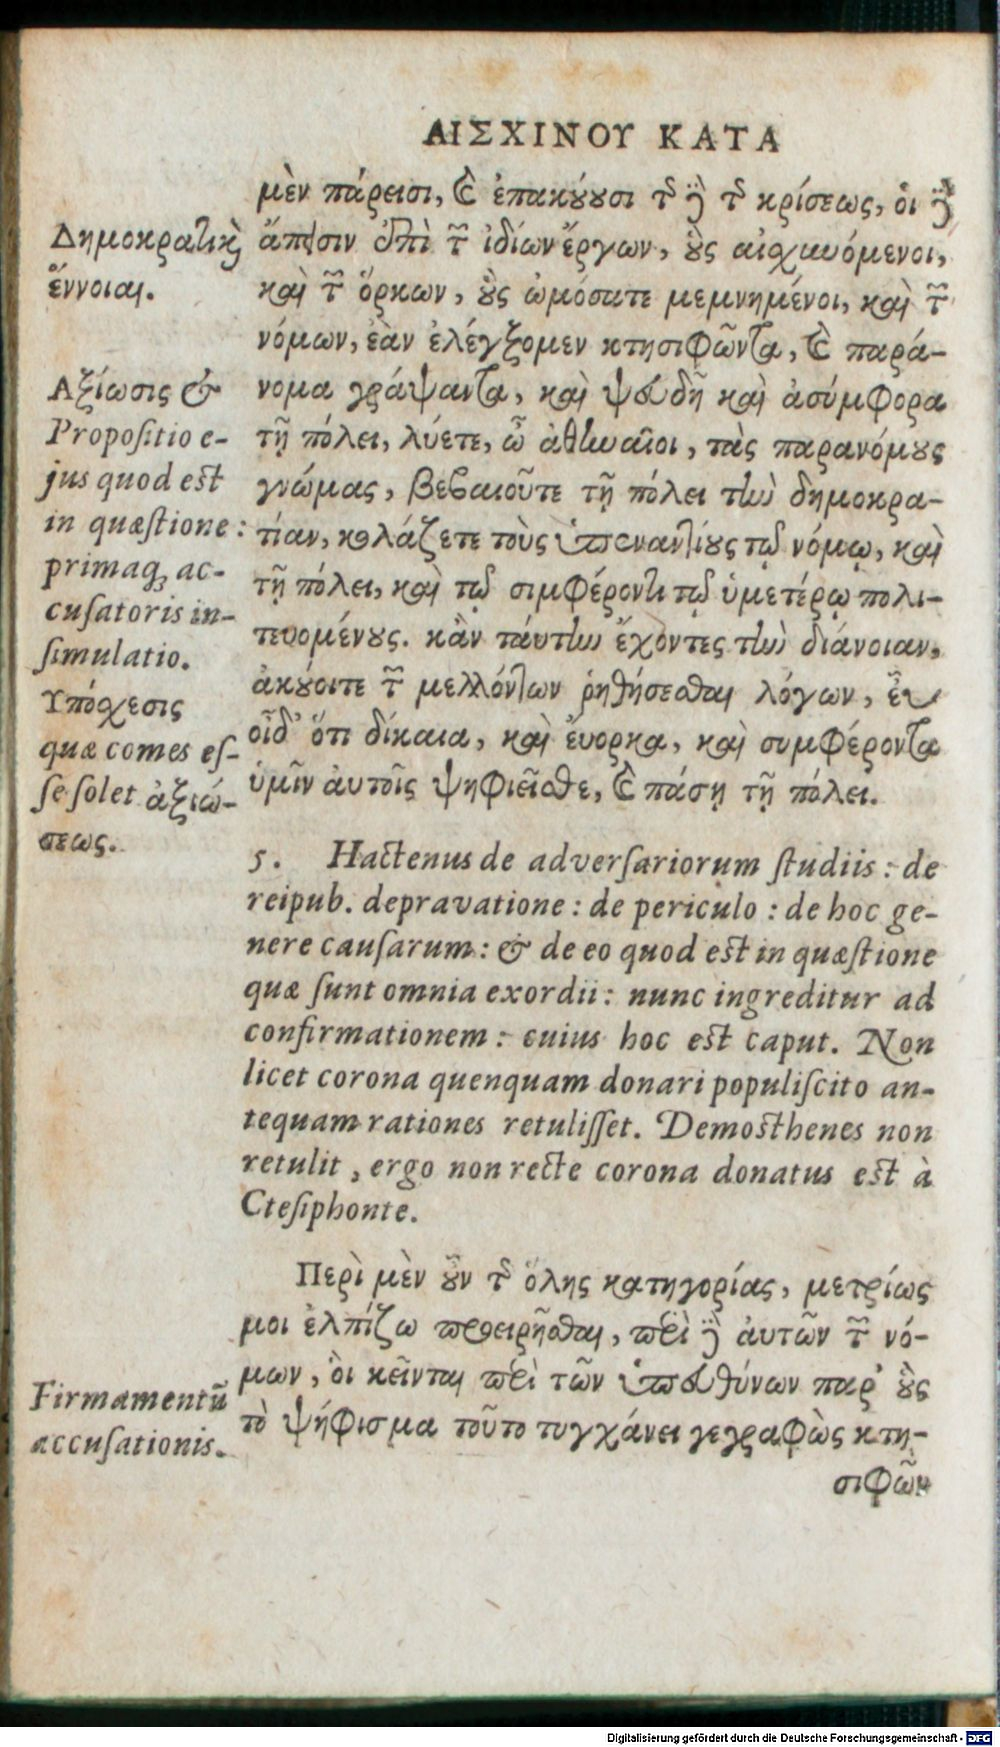 ΑΙΣΧΙΝΟΥ ΚΑΤΑ
μὲν πάρεισι, καὶ ἐπακούουσι τῆς δὲ τῆς κρίσεως, οἱ δὲ
ἄπεισιν ἐπὶ τῶν ἰδίων ἔργων, οὓς αἰσχυνόμενοι,
καὶ τῶν ὅρκων, οὓς ὠμόσατε μεμνημένοι, καὶ τῶν
νόμων, ἐὰν ἐλέγξομεν κτησιφῶντα, καὶ παρά-
νομα γράψαντα, καὶ ψευδῆ καὶ ἀσύμφορα
τῇ πόλει, λύετε, ὦ ἀθηναῖοι, τὰς παρανόμους
γνώμας, βεβαιοῦτε τῇ πόλει τὴν δημοκρα-
τίαν, κολάζετε τοὺς ὑπεναντίους τῷ νόμῳ, καὶ
τῇ πόλει, καὶ τῷ σιμφέροντι τῷ ὑμετέρῳ πολι-
τευομένους. κἂν ταύτην ἔχοντες τὴν διάνοιαν,
ἀκούοιτε τῶν μελλόντων ῥηθήσεσθαι λόγων, εὖ
οἶδ' ὅτι δίκαια, καὶ εὔορκα, καὶ συμφέροντα
ὑμῖν αὐτοῖς ψηφιεῖσθε, καὶ πάσῃ τῇ πόλει.
Δημοκρατικαὶ
ἔννοιαι.
Αξίωσις &
Propositio e-
jus quod est
in quæstione:
primaq; ac-
cusatoris in-
simulatio.
Υπόσχεσις
quæ comes es-
se solet ἀξιώ-
σεως.
5. Hactenus de adversariorum studiis: de
reipub. depravatione: de periculo: de hoc ge-
nere causarum: & de eo quod est in quæstione
quæ sunt omnia exordii: nunc ingreditur ad
confirmationem: cuius hoc est caput. Non
licet corona quenquam donari populiscito an-
tequam rationes retulisset. Demosthenes non
retulit, ergo non recte corona donatus est à
Ctesiphonte.
Περὶ μὲν οὖν τῆς ὅλης κατηγορίας, μετρίως
μοι ἐλπίζω προειρῆσθαι, περὶ δὲ αὐτῶν τῶν νό-
μων, οἳ κεῖνται περὶ τῶν ὑπευθύνων παρ' οὓς
τὸ ψήφισμα τοῦτο τυγχάνει γεγραφὼς κτη-
σιφῶν
Firmamentũ
accusationis.
Digitalisierung gefördert durch die Deutsche Forschungsgemeinschaft - DFG